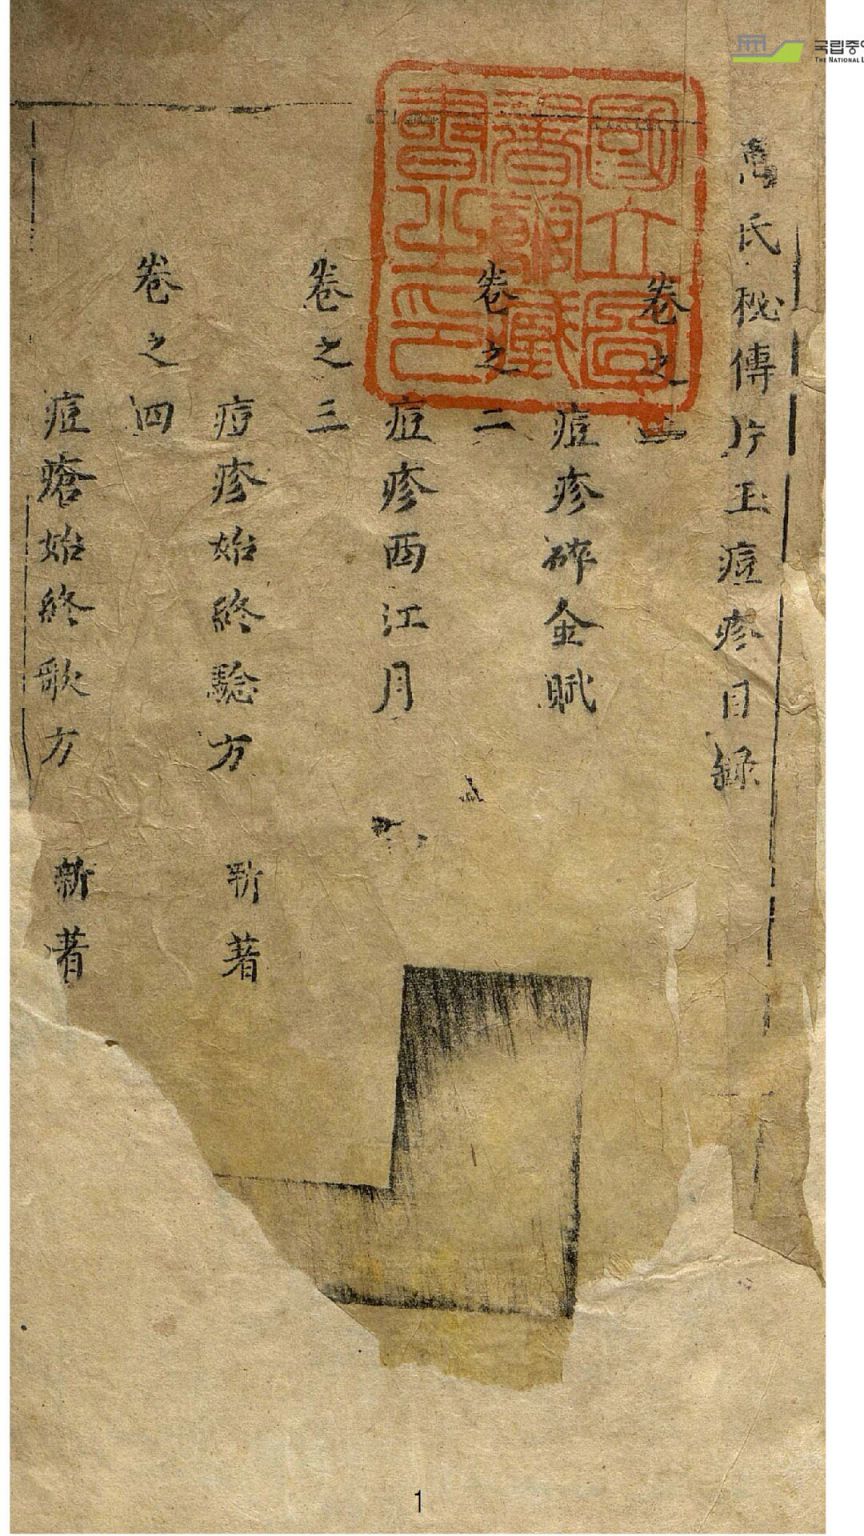 萬氏秘傳片玉痘疹目錄
卷之一
痘疹碎金賦
卷之二
痘疹西江月
卷之三
痘疹始終驗方 新著
卷之四
痘瘡始終歌方 新著
國立圖
書館藏
書之印
국립중
THE NATIONAL L
1